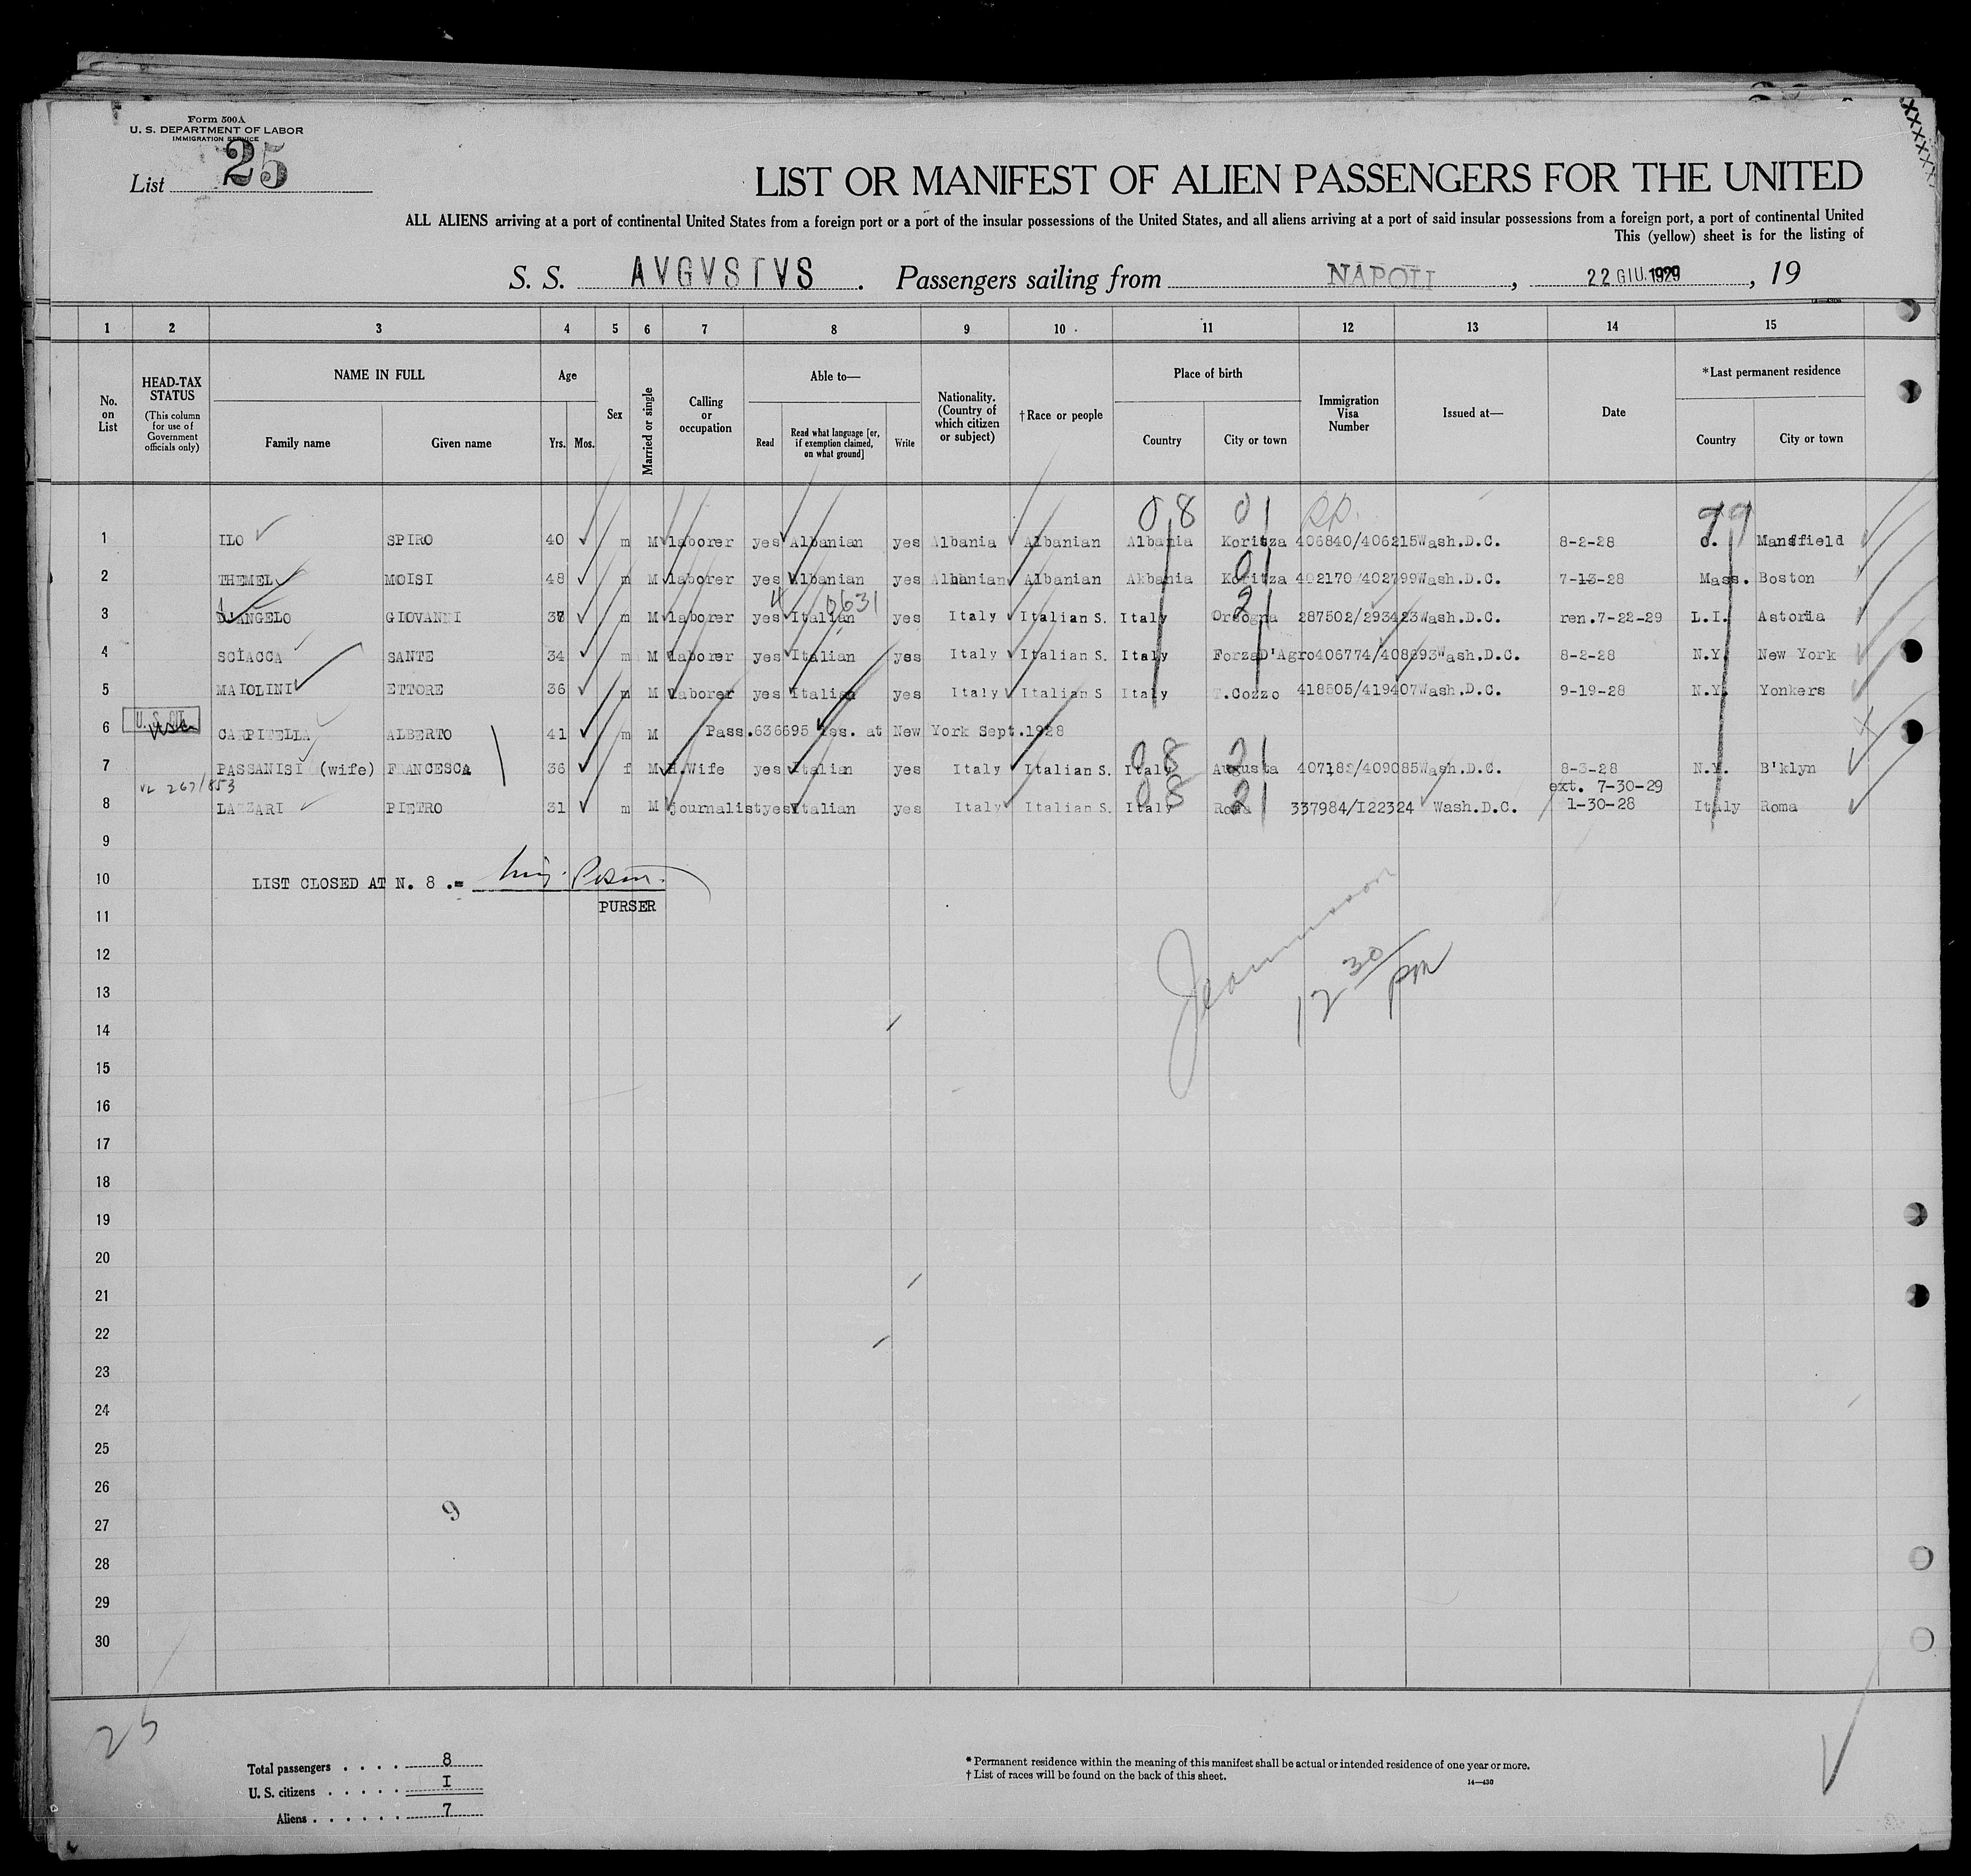 Form 500A
U. S. DEPARTMENT OF LABOR
IMMIGRATION SERVICE
List 25
LIST OR MANIFEST OF ALIEN PASSENGERS FOR THE UNITED
ALL ALIENS arriving at a port of continental United States from a foreign port or a port of the insular possessions of the United States, and all aliens arriving at a port of said insular possessions from a foreign port, a port of continental United
This (yellow) sheet is for the listing of
S. S. AVGVSTVS. Passengers sailing from NAPOLI, 22 GIU. 1929, 19
1 2 3 4 5 6 7 8 9 10 11 12 13 14 15
No. on List
HEAD-TAX STATUS
(This column for use of Government officials only)
NAME IN FULL
Family name Given name
Age
Yrs. Mos.
Sex
Married or single
Calling or occupation
Able to—
Read
Read what language [or, if exemption claimed, on what ground]
Write
Nationality. (Country of which citizen or subject)
†Race or people
Place of birth
Country City or town
Immigration Visa Number
Issued at—
Date
*Last permanent residence
Country City or town
08 01 99
1 ILO SPIRO 40 m M laborer yes Albanian yes Albania Albanian Albania Koritza 406840/406215 Wash.D.C. 8-2-28 O. Mansfield
01
2 THEMEL MOISI 48 m M laborer yes Albanian yes Albanian Albanian Akbania Koritza 402170/402799 Wash.D.C. 7-13-28 Mass. Boston
4 0631 21
3 D'ANGELO GIOVANNI 37 m M laborer yes Italian yes Italy Italian S. Italy Orsogna 287502/293423 Wash.D.C. ren.7-22-29 L.I. Astoria
4 SCIACCA SANTE 34 m M laborer yes Italian yes Italy Italian S. Italy ForzaD'Agro 406774/408693 Wash.D.C. 8-2-28 N.Y. New York
5 MAIOLINI ETTORE 36 m M laborer yes Italian yes Italy Italian S Italy T.Cozzo 418505/419407 Wash.D.C. 9-19-28 N.Y. Yonkers
U. S. CIT.
6 CARPITELLA ALBERTO 41 m M Pass.636695 iss. at New York Sept.1928
08 21
7 PASSANISI (wife) FRANCESCA 36 f M H.Wife yes Italian yes Italy Italian S. Italy Augusta 407182/409085 Wash.D.C. 8-3-28 N.Y. B'klyn
267/853 08 21 ext. 7-30-29
8 LAZZARI PIETRO 31 m M journalist yes Italian yes Italy Italian S. Italy Roma 337984/I22324 Wash.D.C. 1-30-28 Italy Roma
9
10 LIST CLOSED AT N. 8 .=
PURSER
11
12
12 30 pm
13
14
15
16
17
18
19
20
21
22
23
24
25
26
27
9
28
29
30
25
Total passengers . . . . 8
U. S. citizens . . . . . I
Aliens . . . . . . 7
* Permanent residence within the meaning of this manifest shall be actual or intended residence of one year or more.
† List of races will be found on the back of this sheet.
14—430